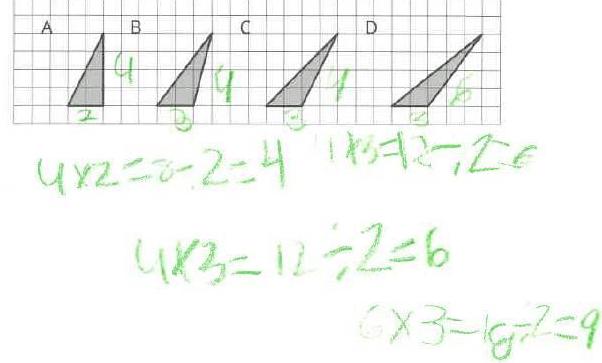 A B C D
4 4 4 6
2 3 3 3
4x2=8÷2=4 4x3=12÷2=6
4x3=12÷2=6
6x3=18÷2=9